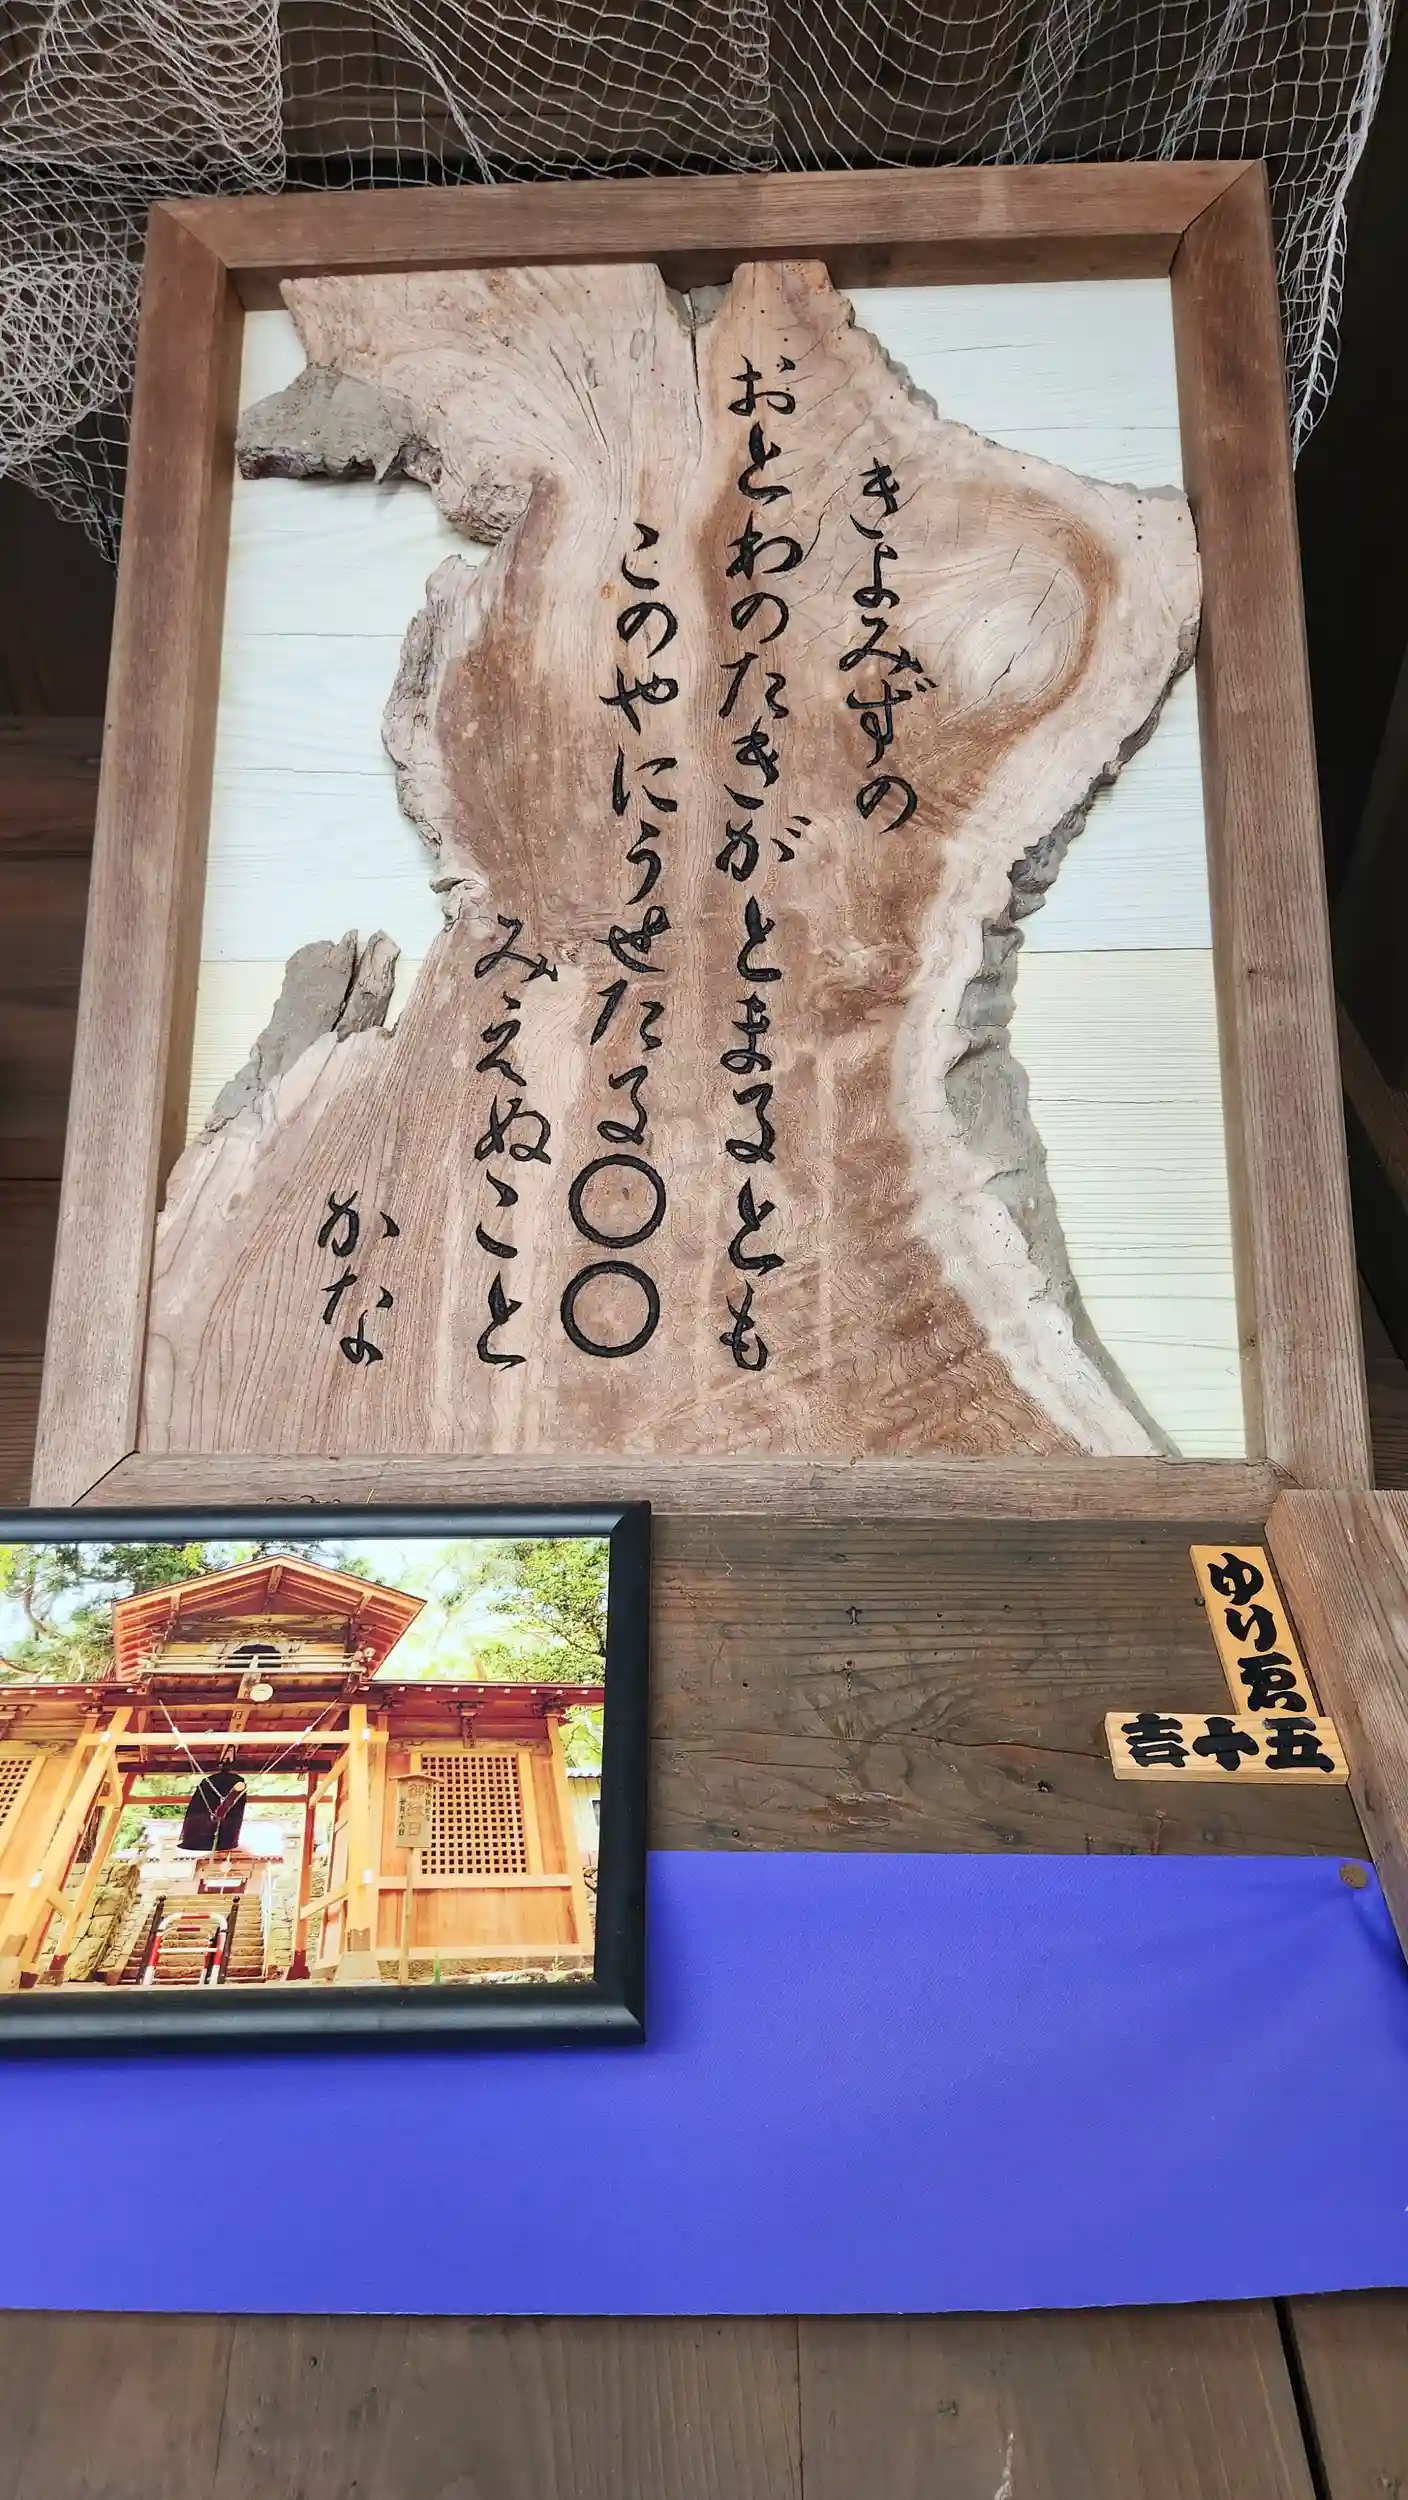 きよみずの
おとわのたきがとまるとも
このやにうせたる〇〇
みえぬこと
かな
ゆりゑ
五十吉